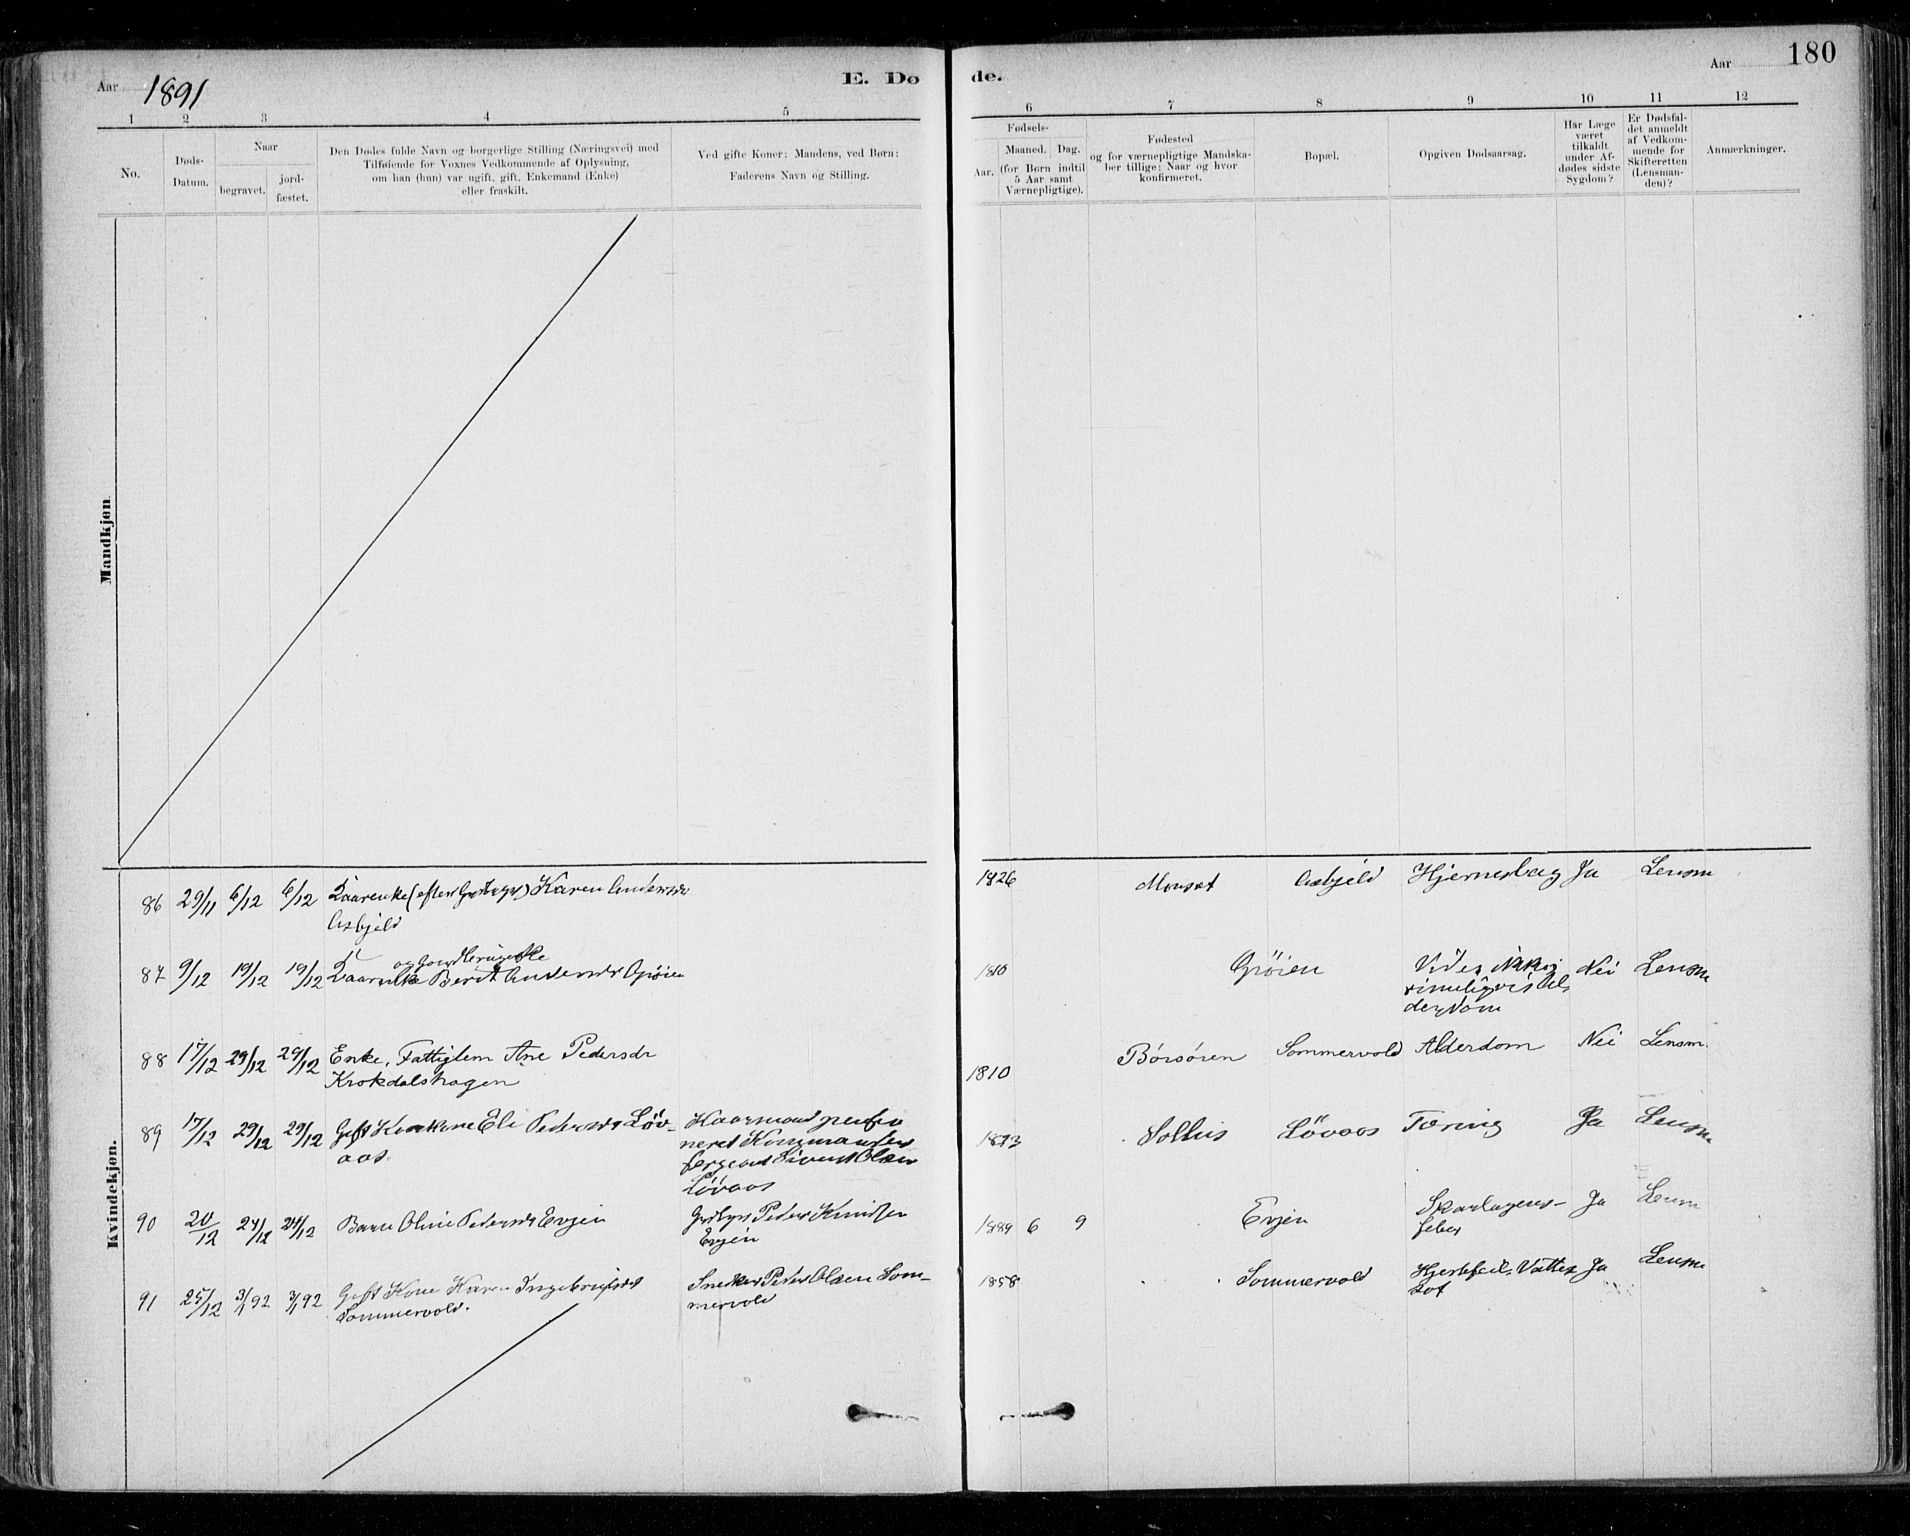 Aar 1891
E. Dø
de.
Aar
180
1 2 3 4 5 6 7 8 9 10 11 12
No.
Døds-
Datum.
Naar
begravet.
jord-
fæstet.
Den Dødes fulde Navn og borgerlige Stilling (Næringsvei) med
Tilføiende for Voxnes Vedkommende af Oplysning,
om han (hun) var ugift, gift, Enkemand (Enke)
eller fraskilt.
Ved gifte Koner: Mandens, ved Børn:
Faderens Navn og Stilling.
Fødsels-
Aar.
Maaned. Dag.
(for Børn indtil
5 Aar samt
Værnepligtige).
Fødested
og for værnepligtige Mandska-
ber tillige: Naar og hvor
konfirmeret.
Bopæl.
Opgiven Dødsaarsag.
Har Læge
været
tilkaldt
under Af-
dødes sidste
Sygdom?
Er Dødsfal-
det anmeldt
af Vedkom-
mende for
Skifteretten
(Lensman-
den)?
Anmærkninger.
Mandkjøn
Kvindekjøn.
86 29/11 6/12 6/12 Kaarenke (efter Grdbrgr) Karen Andersdr 1826 Monset Aasbjeld Hjerneslag Ja Lensm
Aasbjeld
87 9/12 19/12 19/12 Kaarenke Berit Andersdr Grøien 1810 Grøien Vides ikke; Nei Lensm
rimeligvis Al-
derdom
88 17/12 29/12 29/12 Enke, Fattiglem Ane Pedersdr 1810 Børsøren Sommervold Alderdom Nei Lensm.
Krokdalshagen
89 17/12 29/12 29/12 Gift Kaarkone Eli Pedersdr Løv- Kaarmand pensio Løvaas Tæring Ja Lensm
aas. neret
Sergeant Sivert Olsen
Løvaas
90 20/12 24/12 24/12 Barn Oline Pedersdr Evjen Grdbgr Peder Knudsen 1889 6 9 Evjen Skarlagens- Ja Lensm
Evjen feber
91 25/12 3/1 92 3/1 92 Gift Kone Karen Ingebrigtsdr Snedker Peder Olsen Som- 1858 Sommervold Hjertefeil, Vatter Ja Lensm
Sommervold. mervold Sot